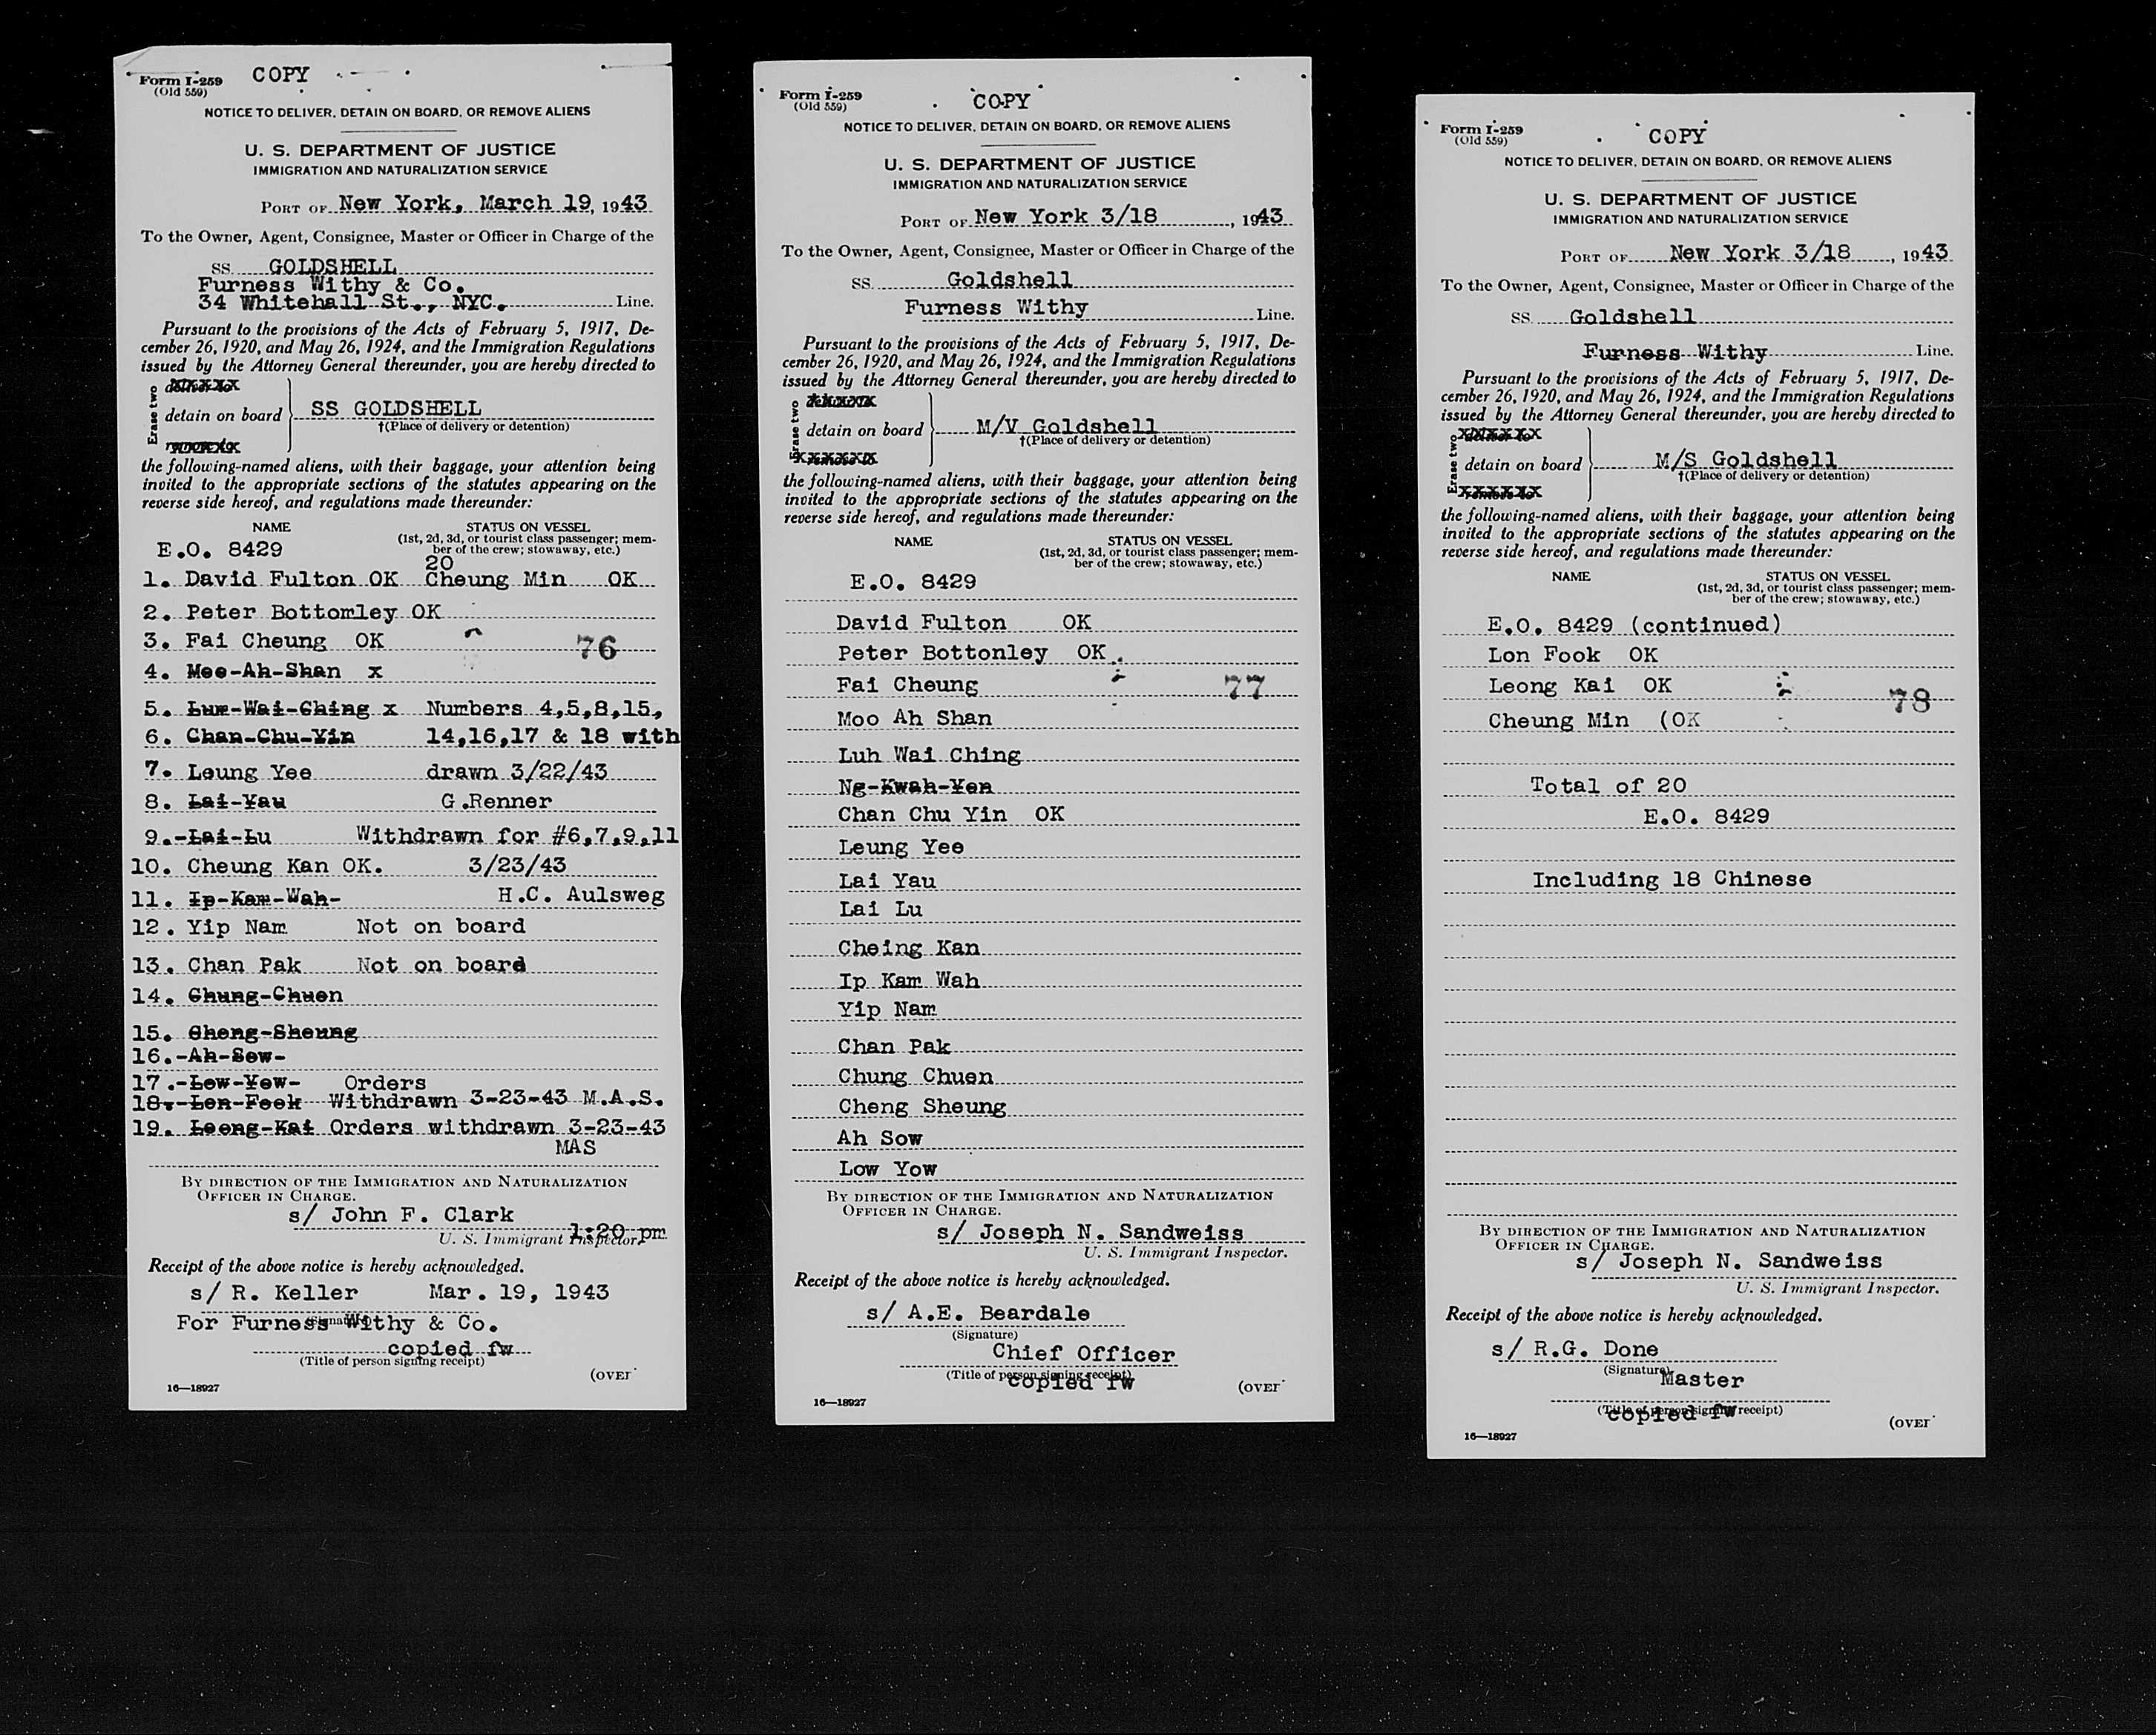 Form I-259 COPY
(Old 559)
NOTICE TO DELIVER, DETAIN ON BOARD, OR REMOVE ALIENS
U. S. DEPARTMENT OF JUSTICE
IMMIGRATION AND NATURALIZATION SERVICE
PORT OF New York, March 19, 1943
To the Owner, Agent, Consignee, Master or Officer in Charge of the
SS. GOLDSHELL
Furness Withy & Co.
34 Whitehall St., NYC. Line.
Pursuant to the provisions of the Acts of February 5, 1917, De-
cember 26, 1920, and May 26, 1924, and the Immigration Regulations
issued by the Attorney General thereunder, you are hereby directed to
Erase two
deliver to
detain on board SS GOLDSHELL
†(Place of delivery or detention)
remove to
the following-named aliens, with their baggage, your attention being
invited to the appropriate sections of the statutes appearing on the
reverse side hereof, and regulations made thereunder:
NAME STATUS ON VESSEL
(1st, 2d, 3d, or tourist class passenger; mem-
E.O. 8429 ber of the crew; stowaway, etc.)
20
1. David Fulton OK Cheung Min OK
2. Peter Bottomley OK
3. Fai Cheung OK 76
4. Moo-Ah-Shan x
5. Lum-Wai-Ching x Numbers 4,5,8,15,
6. Chan-Chu-Yin 14,16,17 & 18 with
7. Leung Yee drawn 3/22/43
8. Lai-Yau G.Renner
9.-Lai-Lu Withdrawn for #6,7,9,11
10. Cheung Kan OK. 3/23/43
11. Ip-Kam-Wah- H.C. Aulsweg
12. Yip Nam Not on board
13. Chan Pak Not on board
14. Chung-Chuen
15. Cheng-Sheung
16.-Ah-Sow-
17.-Low-Yow- Orders
18.-Lon-Fook Withdrawn 3-23-43 M.A.S.
19. Leong-Kai Orders withdrawn 3-23-43
MAS
BY DIRECTION OF THE IMMIGRATION AND NATURALIZATION
OFFICER IN CHARGE.
s/ John F. Clark
1:20 pm
U. S. Immigrant Inspector.
Receipt of the above notice is hereby acknowledged.
s/ R. Keller Mar. 19, 1943
(Signature)
For Furness Withy & Co.
copied fw
(Title of person signing receipt)
(OVER
16—18927
Form I-259 COPY
(Old 559)
NOTICE TO DELIVER, DETAIN ON BOARD, OR REMOVE ALIENS
U. S. DEPARTMENT OF JUSTICE
IMMIGRATION AND NATURALIZATION SERVICE
PORT OF New York 3/18, 1943
To the Owner, Agent, Consignee, Master or Officer in Charge of the
SS. Goldshell
Furness Withy Line.
Pursuant to the provisions of the Acts of February 5, 1917, De-
cember 26, 1920, and May 26, 1924, and the Immigration Regulations
issued by the Attorney General thereunder, you are hereby directed to
Erase two
detain on board M/V Goldshell
†(Place of delivery or detention)
remove to
the following-named aliens, with their baggage, your attention being
invited to the appropriate sections of the statutes appearing on the
reverse side hereof, and regulations made thereunder:
NAME STATUS ON VESSEL
(1st, 2d, 3d, or tourist class passenger; mem-
ber of the crew; stowaway, etc.)
E.O. 8429
David Fulton OK
Peter Bottonley OK
Fai Cheung 77
Moo Ah Shan
Luh Wai Ching
Ng-Kwah-Yen
Chan Chu Yin OK
Leung Yee
Lai Yau
Lai Lu
Cheing Kan
Ip Kam Wah
Yip Nam
Chan Pak
Chung Chuen
Cheng Sheung
Ah Sow
Low Yow
BY DIRECTION OF THE IMMIGRATION AND NATURALIZATION
OFFICER IN CHARGE.
s/ Joseph N. Sandweiss
U. S. Immigrant Inspector.
Receipt of the above notice is hereby acknowledged.
s/ A.E. Beardale
(Signature)
Chief Officer
(Title of person signing receipt)
copied fw
(OVER
16—18927
Form I-259 COPY
(Old 559)
NOTICE TO DELIVER, DETAIN ON BOARD, OR REMOVE ALIENS
U. S. DEPARTMENT OF JUSTICE
IMMIGRATION AND NATURALIZATION SERVICE
PORT OF New York 3/18, 1943
To the Owner, Agent, Consignee, Master or Officer in Charge of the
SS. Goldshell
Furness Withy Line.
Pursuant to the provisions of the Acts of February 5, 1917, De-
cember 26, 1920, and May 26, 1924, and the Immigration Regulations
issued by the Attorney General thereunder, you are hereby directed to
Erase two
deliver to
detain on board M/S Goldshell
†(Place of delivery or detention)
remove to
the following-named aliens, with their baggage, your attention being
invited to the appropriate sections of the statutes appearing on the
reverse side hereof, and regulations made thereunder:
NAME STATUS ON VESSEL
(1st, 2d, 3d, or tourist class passenger; mem-
ber of the crew; stowaway, etc.)
E.O. 8429 (continued)
Lon Fook OK
Leong Kai OK 78
Cheung Min (OK
Total of 20
E.O. 8429
Including 18 Chinese
BY DIRECTION OF THE IMMIGRATION AND NATURALIZATION
OFFICER IN CHARGE.
s/ Joseph N. Sandweiss
U. S. Immigrant Inspector.
Receipt of the above notice is hereby acknowledged.
s/ R.G. Done
(Signature)
Master
(Title of person signing receipt)
copied fw
(OVER
16—18927